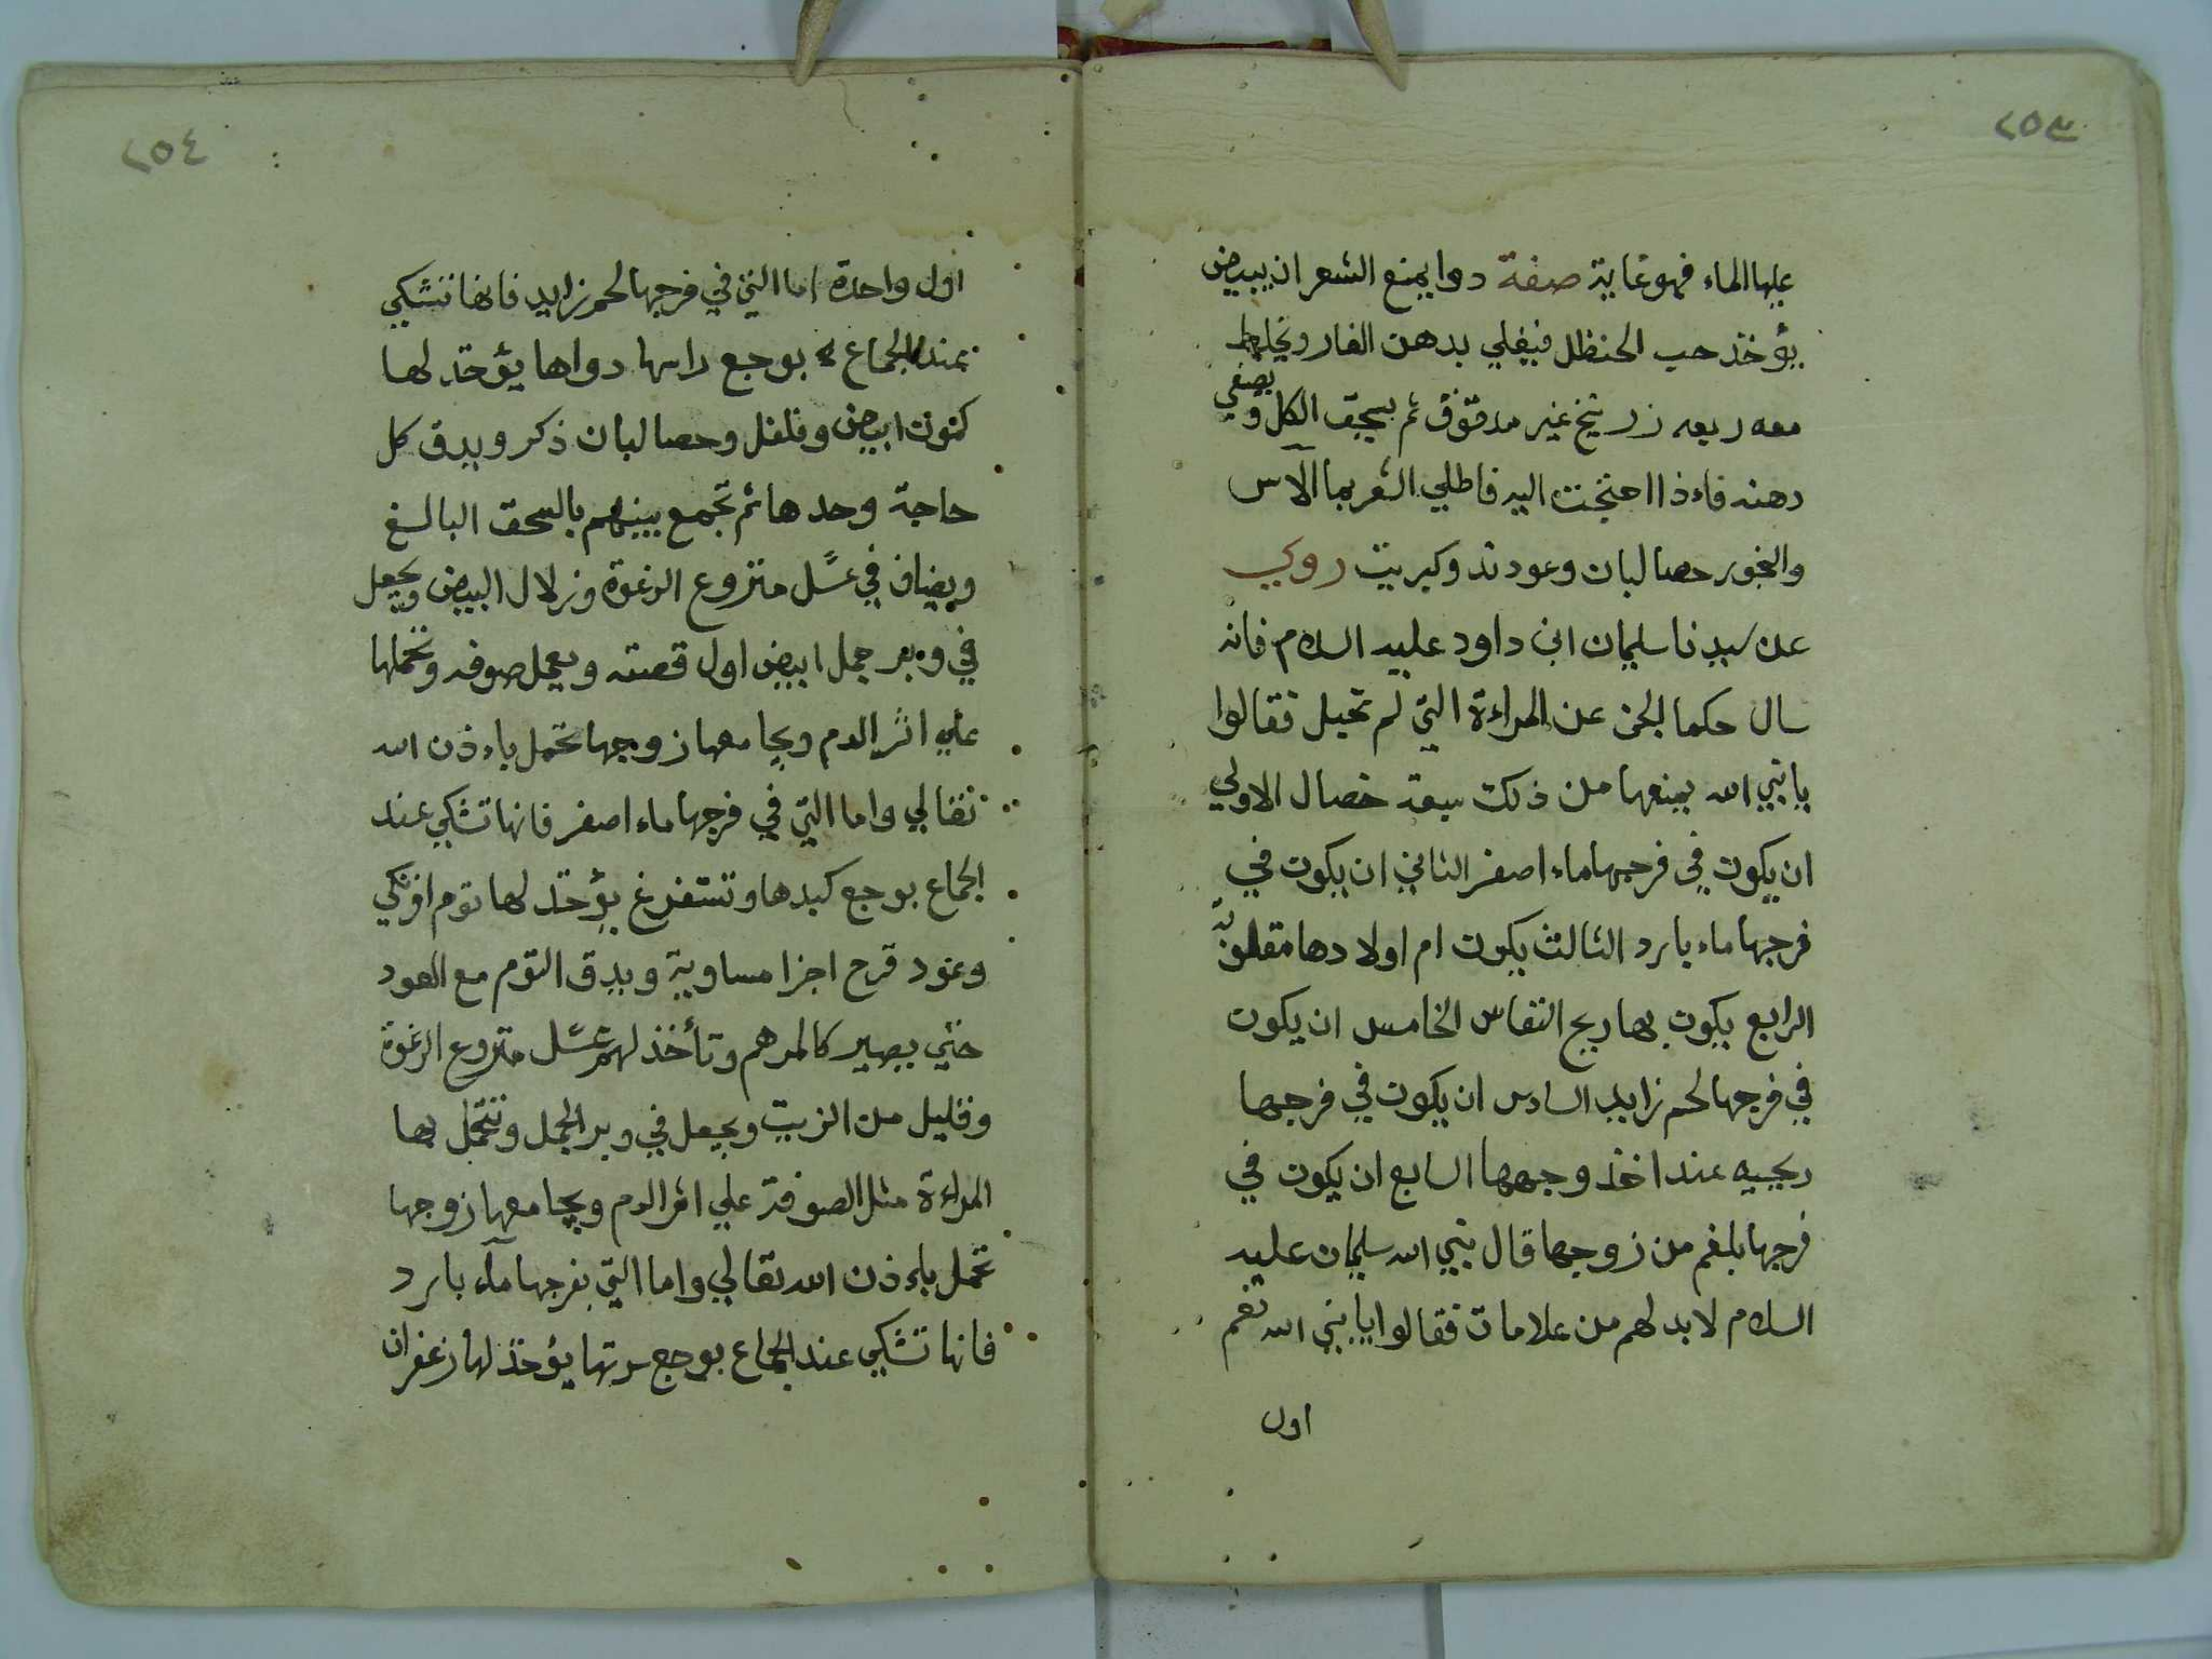 ٢٥٣
عليها الماء فهو غاية صفة دوا يمنع الشعر ان يبيض
يؤخذ حب الحنظل فيغلي بدهن الغار ويخلط
معه ربعه زرنيخ غير مدقوق ثم يسحق الكل ويصفي
دهنه فاءذا احتجت اليه فاطلي الشعر بما الآس
والبخور حصا لبان وعود ند وكبريت روي
عن سيدنا سليمان ابن داود عليه السلام فانه
سال حكما الجن عن المراءة التي لم تحبل فقالوا
يا نبي الله يمنعها من ذلك سبعة خصال الاولي
ان يكون في فرجها ماء اصفر الثاني ان يكون في
فرجها ماء بارد الثالث يكون ام اولادها مقلوبة
الرابع يكون بها ريح النفاس الخامس ان يكون
في فرجها لحم زايد السادس ان يكون في فرجها
ريحيه عند اخذ وجهها السابع ان يكون في
فرجها بلغم من زوجها قال نبي الله سليمان عليه
السلام لا بد لهم من علامات فقالوا يا نبي الله نعم
اول
٢٥٤
اول واحدة اما التي في فرجها لحم زايد فانها تشتكي
عند الجماع بوجع راسها دواها يؤخذ لها
كمون ابيض وفلفل وحصا لبان ذكر ويدق كل
حاجة وحدها ثم تجمع بينهم بالسحق البالغ
ويضاف في عسل منزوع الرغوة وزلال البيض ويجعل
في وبر جمل ابيض اول قصته ويعمل صوفه وتحملها
علي اثر الدم ويجامعها زوجها تحمل باءذن الله
تعالي واما التي في فرجها ماء اصفر فانها تشكي عند
الجماع بوجع كبدها وتستفرغ يؤخذ لها توم افرنكي
وعود قرح اجزا مساوية ويدق التوم مع العود
حتي يصير كالمرهم وتأخذ لهم عسل منزوع الرغوة
وقليل من الزيت ويجعل في وبر الجمل وتتحمل بها
المراءة مثل الصوفة علي اثر الدم ويجامعها زوجها
تحمل باءذن الله تعالي واما التي بفرجها مآء بارد
فانها تشكي عند الجماع بوجع سرتها يؤخذ لها زعفران